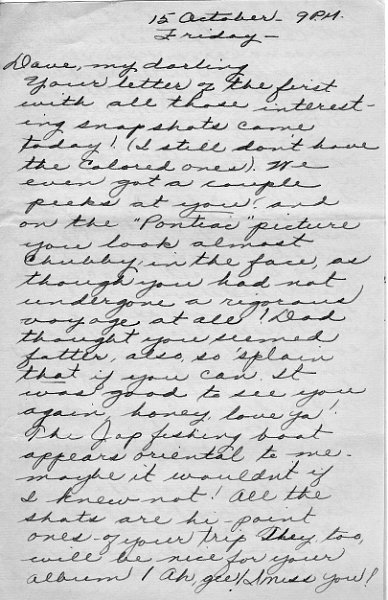 15 October - 9PM.
Friday -
Dave, my darling
Your letter of the first
with all those interest-
ing snapshots came
today! (I still don't have
the colored ones). We
even got a couple
peeks at you! and
on the "Pontiac" picture
you look almost
chubby in the face, as
though you had not
undergone a rigorous
voyage at all! Dad
thought you seemed
fatter, also, so 'splain
that if you can. It
was good to see you
again, honey, love ya!
The Jap fishing boat
appears oriental to me -
maybe it wouldn't if
I knew not! All the
shots are hi-point
ones of your trip. They, too,
will be nice for your
album! Ah, gee! I miss you!